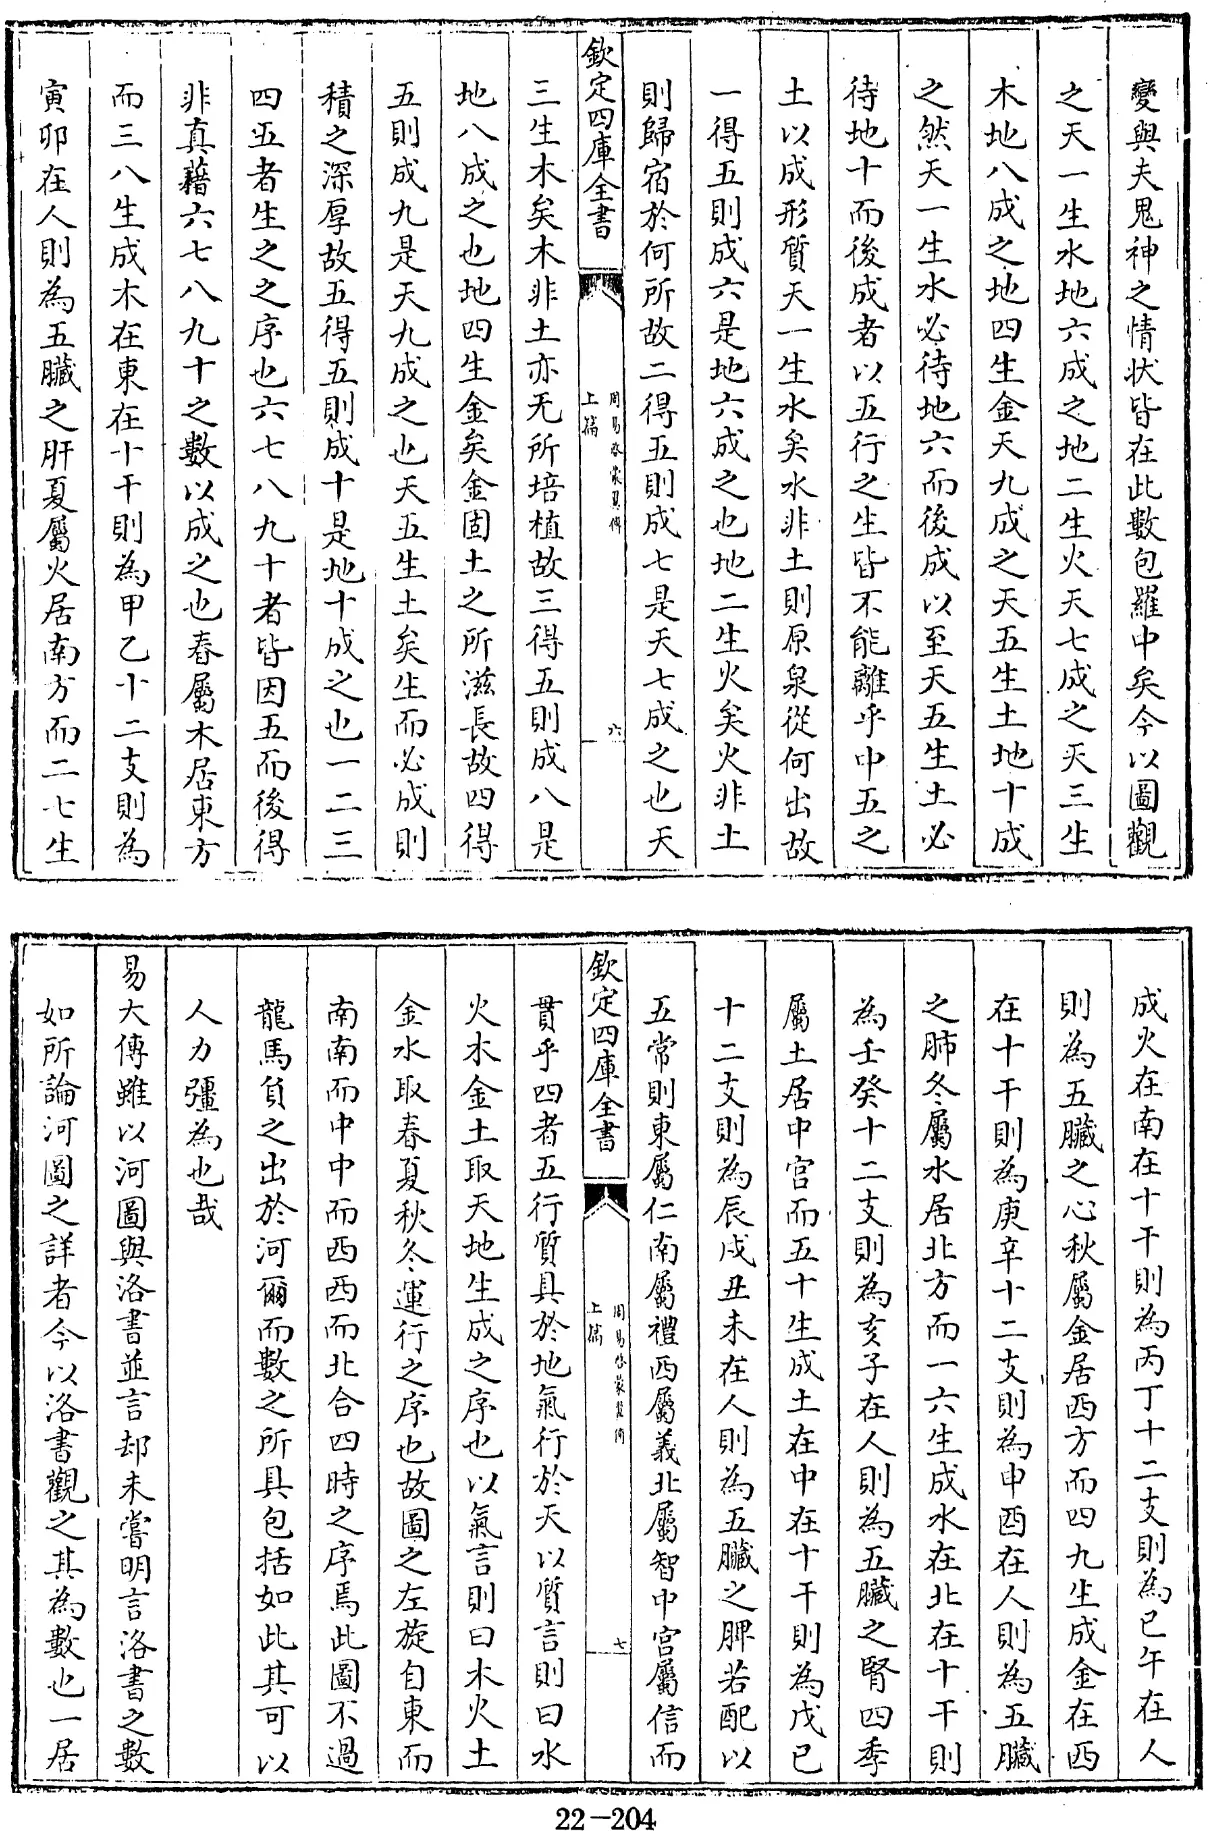 變與夫鬼神之情狀皆在此數包羅中矣今以圖觀
之天一生水地六成之地二生火天七成之天三生
木地八成之地四生金天九成之天五生土地十成
之然天一生水必待地六而後成以至天五生土必
待地十而後成者以五行之生皆不能離乎中五之
土以成形質天一生水矣水非土則原泉從何出故
一得五則成六是地六成之也地二生火矣火非土
則歸宿於何所故二得五則成七是天七成之也天
欽定四庫全書
周易啓蒙翼傳
上篇
六
三生木矣木非土亦无所培植故三得五則成八是
地八成之也地四生金矣金固土之所滋長故四得
五則成九是天九成之也天五生土矣生而必成則
積之深厚故五得五則成十是地十成之也一二三
四五者生之之序也六七八九十者皆因五而後得
非真藉六七八九十之數以成之也春屬木居東方
而三八生成木在東在十干則為甲乙十二支則為
寅卯在人則為五臟之肝夏屬火居南方而二七生
成火在南在十干則為丙丁十二支則為巳午在人
則為五臟之心秋屬金居西方而四九生成金在西
在十干則為庚辛十二支則為申酉在人則為五臟
之肺冬屬水居北方而一六生成水在北在十干則
為壬癸十二支則為亥子在人則為五臟之腎四季
屬土居中宫而五十生成土在中在十干則為戊己
十二支則為辰戌丑未在人則為五臟之脾若配以
五常則東屬仁南屬禮西屬義北屬智中宫屬信而
欽定四庫全書
周易啓蒙翼傳
上篇
七
貫乎四者五行質具於地氣行於天以質言則曰水
火木金土取天地生成之序也以氣言則曰木火土
金水取春夏秋冬運行之序也故圖之左旋自東而
南南而中中而西西而北合四時之序焉此圖不過
龍馬負之出於河爾而數之所具包括如此其可以
人力彊為也哉
易大傳雖以河圖與洛書並言却未嘗明言洛書之數
如所論河圖之詳者今以洛書觀之其為數也一居
22-204